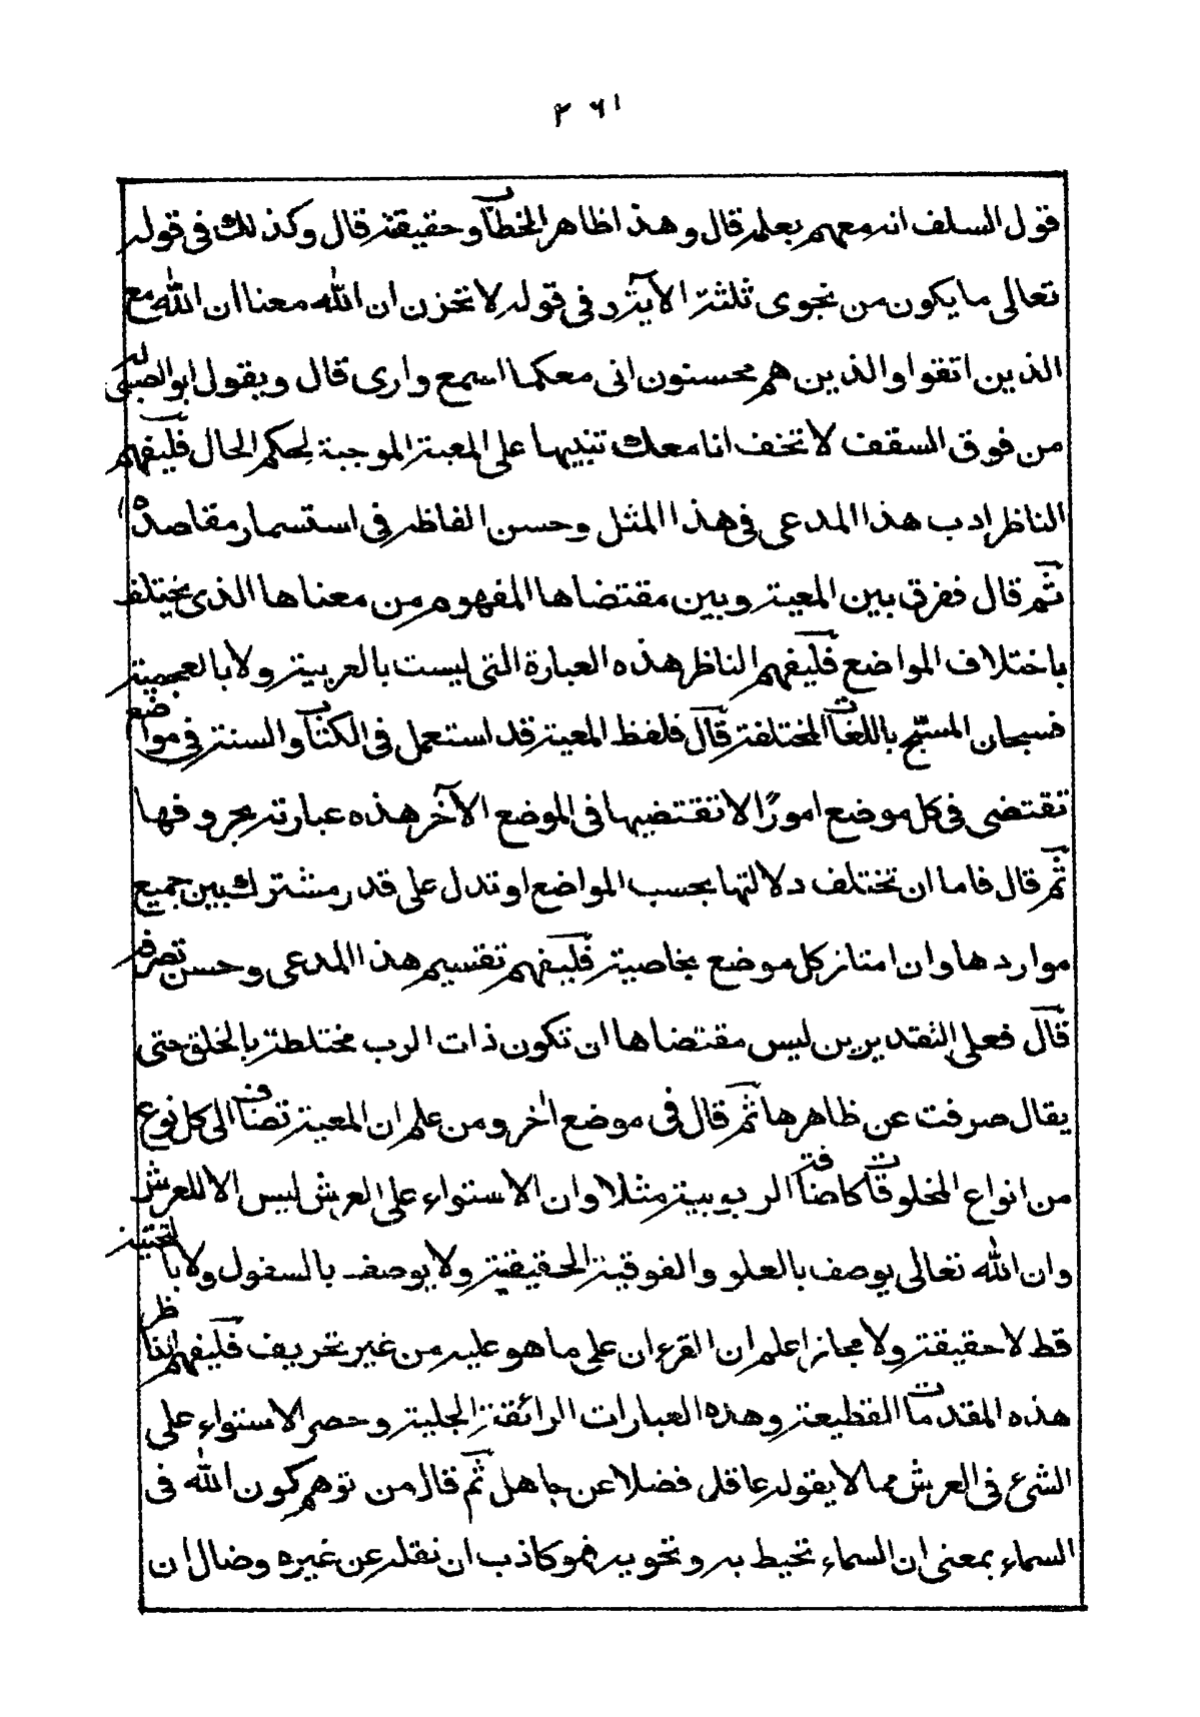 ٢٦١
قول السلف انه معهم بعلمه قال وهذا ظاهر الخطاب وحقيقته قال وكذلك فى قوله
تعالى ما يكون من نجوى ثلثة الآية وفى قوله لا تحزن ان الله معنا ان الله مع
الذين اتقوا والذين هم محسنون انى معكما اسمع وارى قال ويقول ابو الصبى له
من فوق السقف لا تخف انا معك تنبيها على المعية الموجبة لحكم الحال فليفهم
الناظر ادب هذا المدعى فى هذا المثل وحسن الفاظه فى استسمار مقاصده
ثم قال ففرق بين المعية وبين مقتضاها المفهوم من معناها الذى يختلف
باختلاف المواضع فليفهم الناظر هذه العبارة التى ليست بالعربية ولا بالعجمية
فسبحان المسبّح باللغات المختلفة قال فلفظ المعية قد استعمل فى الكتاب والسنة فى مواضع
تقتضى فى كل موضع امورًا لا تقتضيها فى الموضع الآخر هذه عبارته بحروفها
ثم قال فاما ان تختلف دلالتها بحسب المواضع او تدل على قدر مشترك بين جميع
مواردها وان امتاز كل موضع بخاصية فليفهم تقسيم هذا المدعى وحسن تصرفه
قال فعلى التقديرين ليس مقتضاها ان تكون ذات الرب مختلطة بالخلق حتى
يقال صرفت عن ظاهرها ثم قال فى موضع اٰخر ومن علم ان المعية تضاف الى كل نوع
من انواع المخلوقات كاضافة الربوبية مثلا وان الاستواء على العرش ليس الا للعرش
وان الله تعالى يوصف بالعلو والفوقية الحقيقية ولا يوصف بالسفول ولا بالتحتية
قط لا حقيقة ولا مجازا علم ان القرءان على ما هو عليه من غير تحريف فليفهم الناظر
هذه المقدمات القطيعة وهذه العبارات الرائقة الجلية وحصر الاستواء على
الشئ فى العرش مما لا يقوله عاقل فضلا عن جاهل ثم قال من توهم كون الله فى
السماء بمعنى ان السماء تحيط به وتحويه فهو كاذب ان نقله عن غيره وضال ان